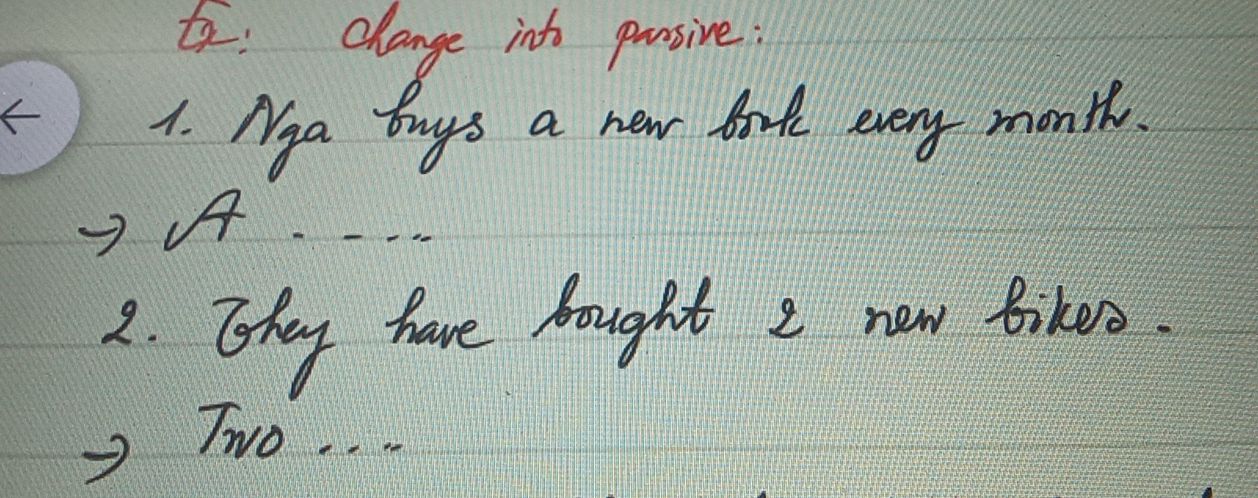 Ex: Change into passive:
1. Nga buys a new book every month.
→ A . - - ...
2. They have bought 2 new bikes.
→ Two ....